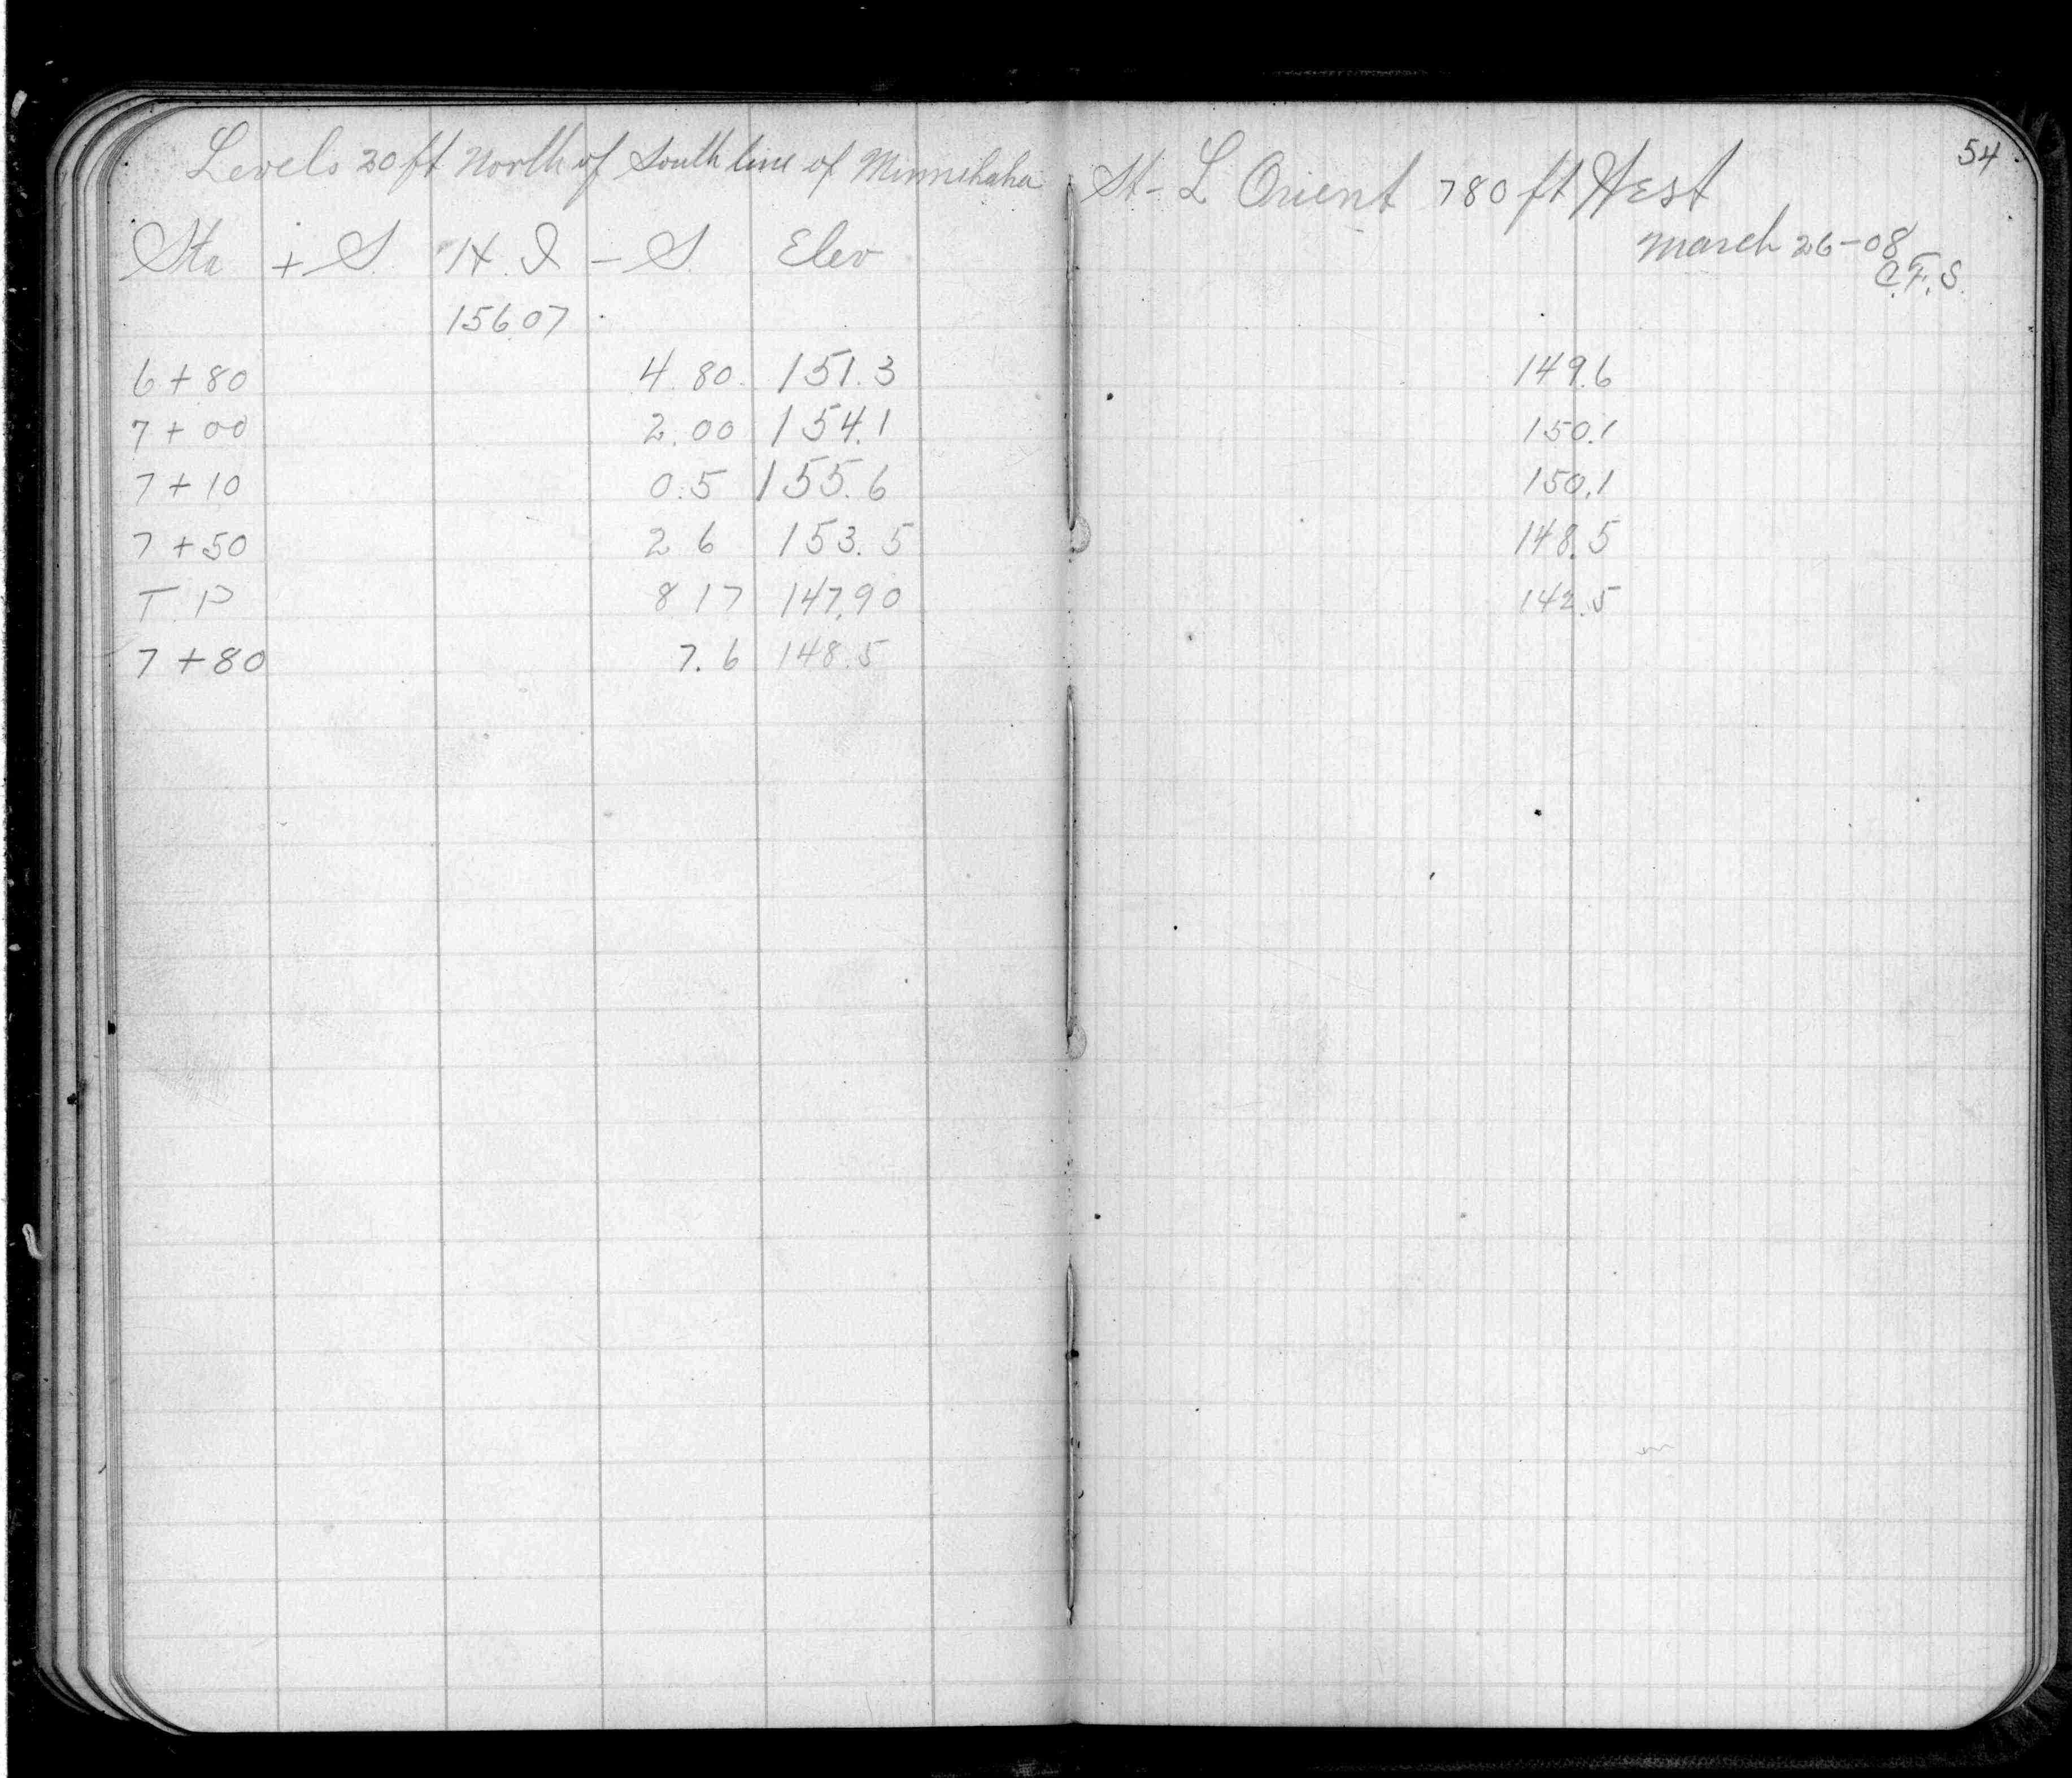 54
Levels 20 ft North of South line of Minnehaha St - L Orient 780 ft West
March 26-08
C.F.S.
Sta + S. H. I - S. Elev
156.07
6 + 80 4.80 151.3 149.6
7 + 00 2.00 154.1 150.1
7 + 10 0.5 155.6 150.1
7 + 50 2 6 153.5 148.5
T.P 8 17 147.90 142.5
7 + 80 7.6 148.5